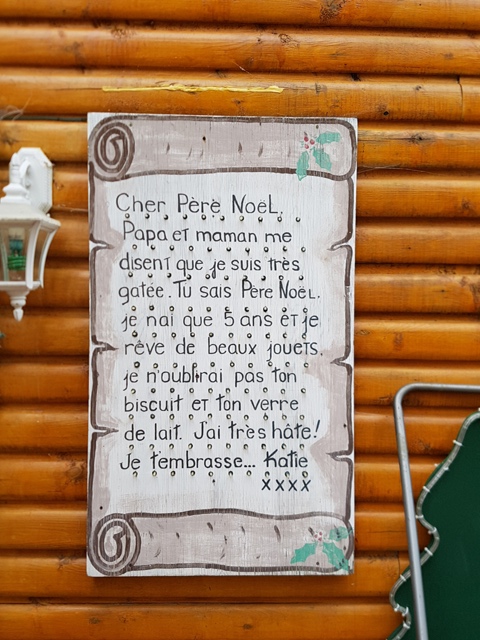 Cher Père Noël,
Papa et maman me
disent que je suis très
gatée. Tu sais Père Noël.
je nai que 5 ans et je
rêve de beaux jouets.
je n'oublirai pas ton
biscuit et ton verre
de lait. J'ai très hâte!
Je t'embrasse... Katie
xxxx